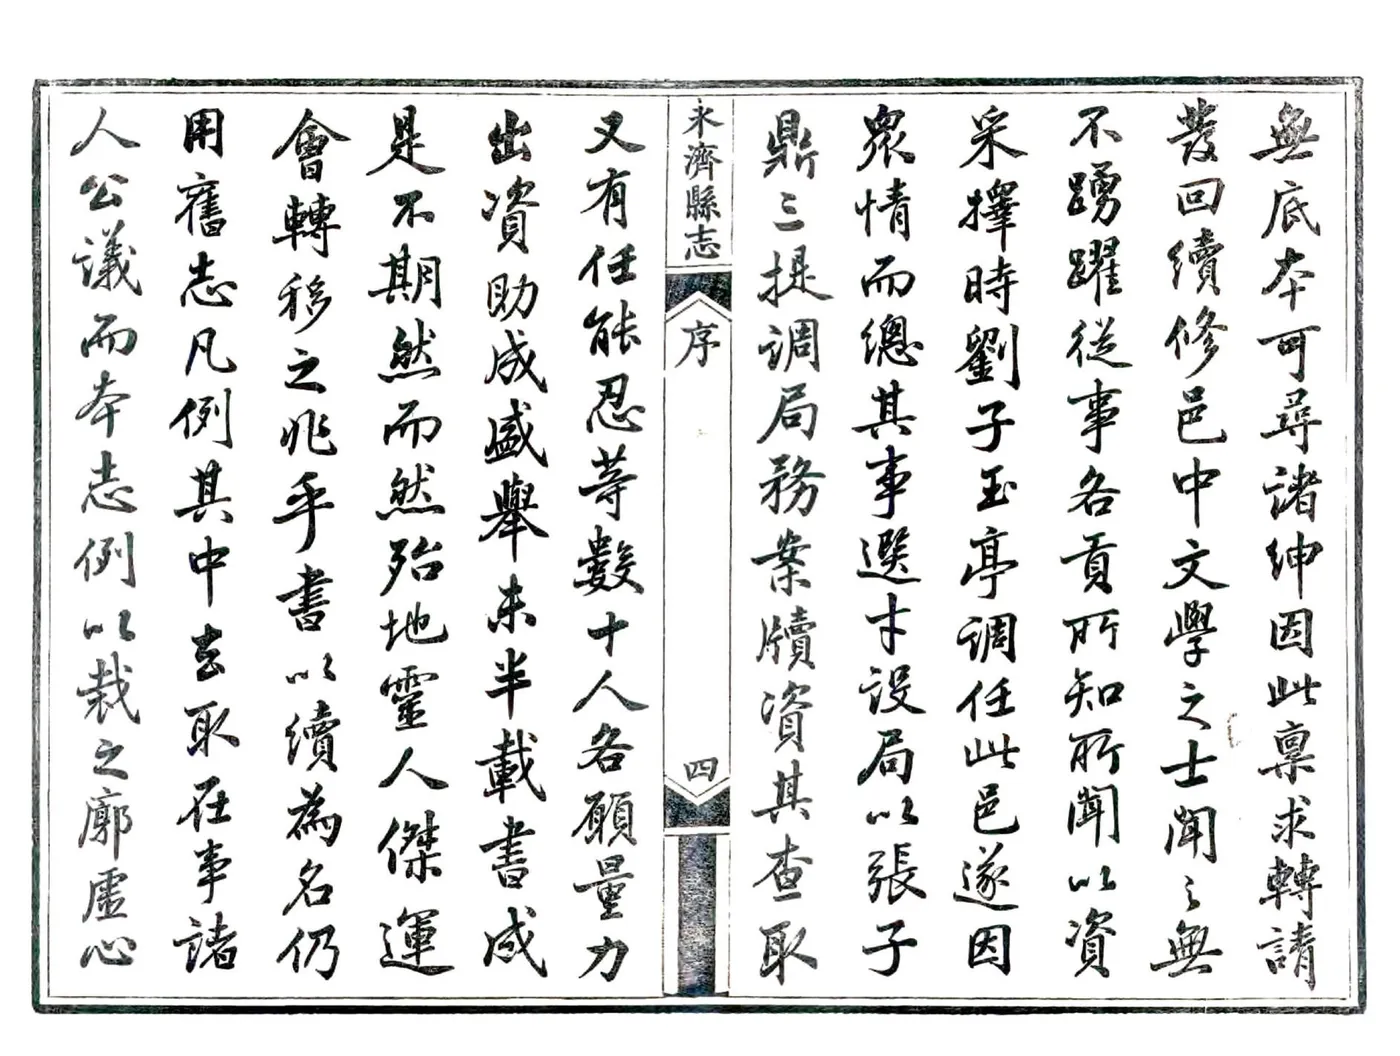 無底本可尋諸紳因此稟求轉請
發回續修邑中文學之士聞之無
不踴躍從事各貢所知所聞以資
采擇時劉子玉亭調任此邑遂因
眾情而總其事選才設局以張子
鼎三提調局務案牘資其查取
永濟縣志
序
四
又有任能忍等數十人各願量力
出資助成盛舉未半載書成
是不期然而然殆地靈人傑運
會轉移之兆乎書以續為名仍
用舊志凡例其中去取在事諸
人公議而本志例以裁之廓虛心